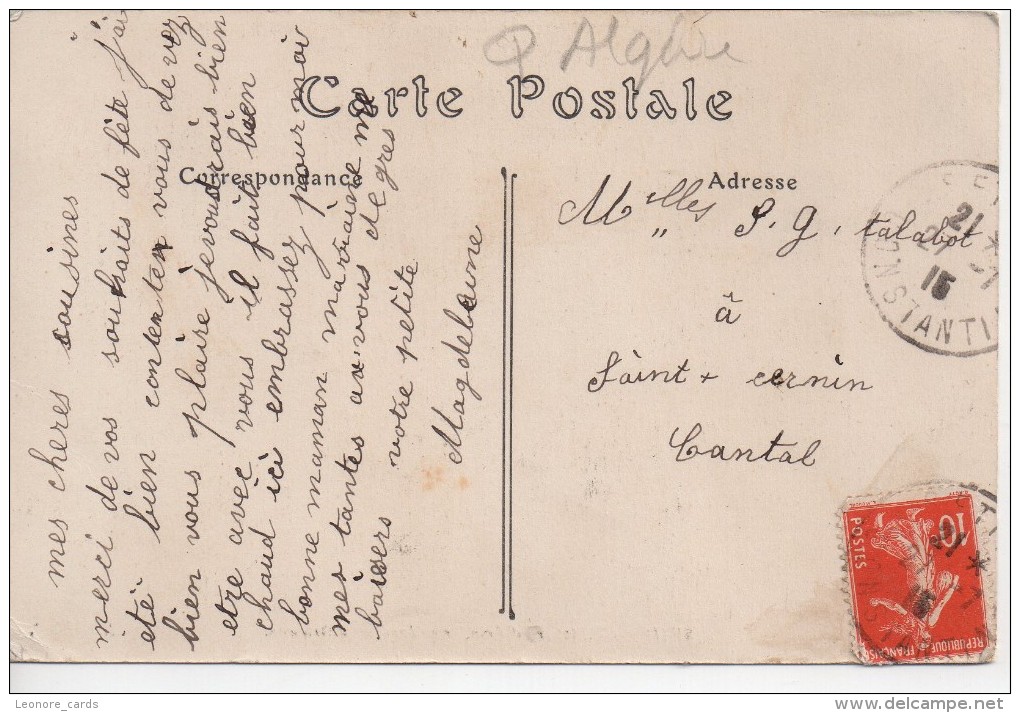 Algérie
Carte Postale
Correspondance
Adresse
mes cheres cousines
merci de vos souhaits de fête j'ai
été bien contente vous devez
bien vous plaire je voudrais bien
etre avec vous il fait bien
chaud ici embrassez pour moi
bonne maman ma vraie me
mes tantes a vous de gres
baisers votre petite
Magdeleine
Melles S. G. talabot
à
Saint cernin
Cantal
SET
21 *
27 -7
15
CONSTANTI
10
POSTES
REPUBLIQUE FRANÇAISE
21 *
-7
15
Leonore_cards
www.delcampe.net